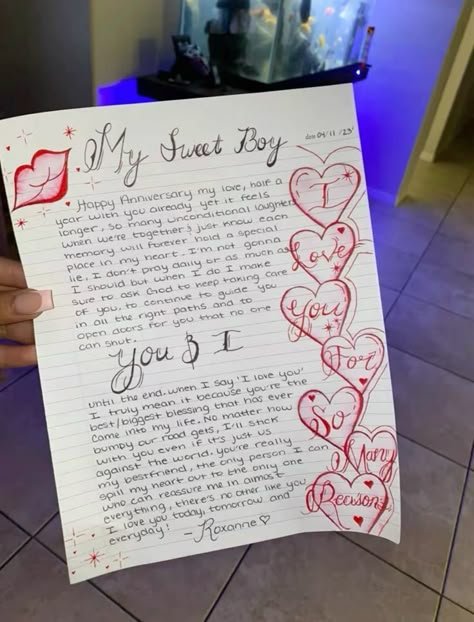 My Sweet Boy
date 04/11/23'
Happy Anniversary my love, half a
year with you already yet it feels
longer, so many unconditional laughter
when we're together & just know each
memory will forever hold a special
place in my heart. I'm not gonna
lie, I don't pray daily or as much as
I should but when I do I make
sure to ask God to keep taking care
of you, to continue to guide you
in all the right paths and to
open doors for you that no one
can shut.
You & I
until the end. when I say 'I love you'
I truly mean it because you're the
best/biggest blessing that has ever
came into my life. No matter how
bumpy our road gets, I'll stick
with you even if it's just us
against the world. you're really
my bestfriend, the only person I can
spill my heart out to the only one
who can reassure me in almost
everything, there's no other like you
I love you today, tomorrow and
everyday!
- Roxanne
I
Love
You
For
So
Many
Reasons